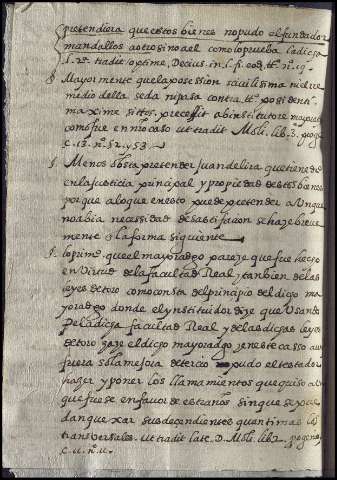 pretendiera que estos bienes no pudo el fundador
mandallos a otro sino a el como lo prueba la dicha
l. et tradit optime, Decius. in l. fi. cod. tt. nº. 19.
§. Mayormente que la posession civilissima ni el re
medio della se da ni passa contra tt. posident
maxime si tt. precessit ab institutore mayoratº
como fue en nro caso ut tradit Moli. lib. 3.
c. 13. nº. 52. y 53.
§. Menos obsta pretender Juan de lira que tiene de
en la justicia principal y propiedad destos bienes
porque a lo que en esto puede pretender aunque
no abia necessidad de satisfacion se haze breve
mente en la forma siguiente
§. lo primº. que el mayoradgo pareze que fue hecho
en Virtud de la facultad Real, y tambien de las
leyes de toro como consta del principio del dicho ma
yoradgo donde el ynstituidor dize que Usando
de la dicha facultad Real y de las dichas leyes
de toro haze el dicho mayoradgo, y en este casso aun
fuera solo mejora de tercio pudo el testador
hazer y poner los llamamientos que quiso aun
que fuese en favor de estraños sin que se pue
dan quexar sus decendientes quanti mas los
transversales. ut tradit late. D. Moli. lib. 2.
c. 11. nº. 11.